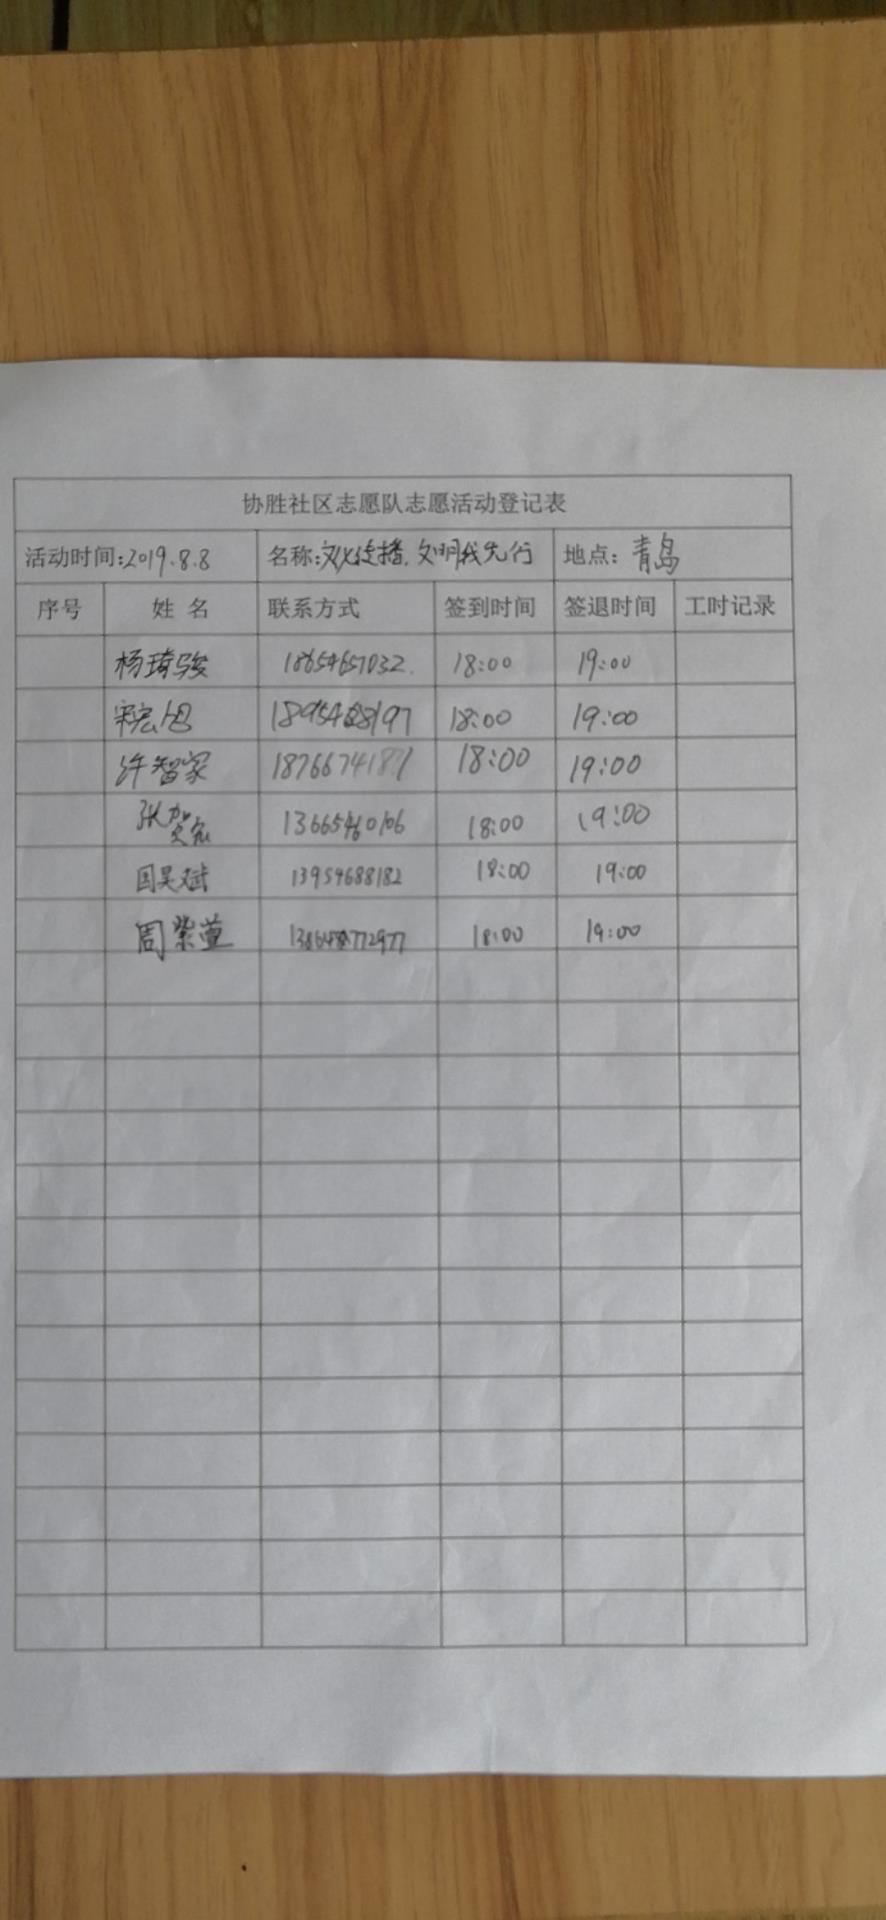 协胜社区志愿队志愿活动登记表
活动时间:2019.8.8 名称:文化传播,文明我先行 地点:青岛
序号 姓名 联系方式 签到时间 签退时间 工时记录
杨琦骏 18654657032. 18:00 19:00
宋宏旭 18:00 19:00
许智家 18766741871 18:00 19:00
张贺宏 13665460106 18:00 19:00
国昊斌 13954688182 18:00 19:00
周紫萱 18:00 19:00